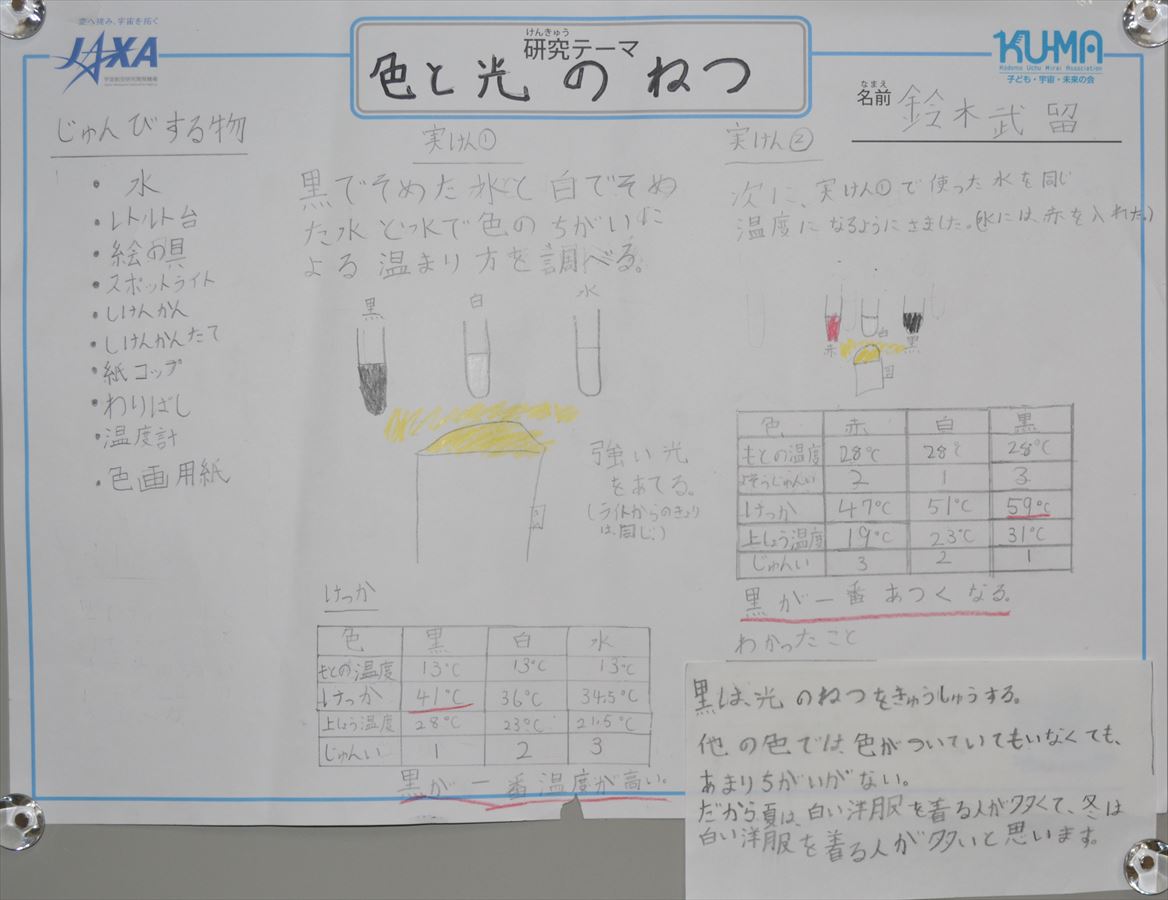 空へ挑み、宇宙を拓く
JAXA
宇宙航空研究開発機構
けんきゅう
研究テーマ
色と光のねつ
KU-MA
Kodomo Uchu Mirai Association
子ども・宇宙・未来の会
なまえ
名前 鈴木武留
じゅんびする物
・水
・レトルト台
・絵の具
・スポットライト
・しけんかん
・しけんかんたて
・紙コップ
・わりばし
・温度計
・色画用紙
実けん①
黒でそめた水と白でそめ
た水と水で色のちがいに
よる温まり方を調べる。
黒 白 水
強い光
をあてる。
(ライトからのきょり
は同じ。)
けっか
色 黒 白 水
もとの温度 13℃ 13℃ 13℃
けっか 41℃ 36℃ 34.5℃
上しょう温度 28℃ 23℃ 21.5℃
じゅんい 1 2 3
黒が一番温度が高い。
実けん②
次に、実けん①で使った水を同じ
温度になるようにさました。(水には、赤を入れた。)
赤 白 黒
色 赤 白 黒
もとの温度 28℃ 28℃ 28℃
よそうじゅんい 2 1 3
けっか 47℃ 51℃ 59℃
上しょう温度 19℃ 23℃ 31℃
じゅんい 3 2 1
黒が一番あつくなる。
わかったこと
黒は、光のねつをきゅうしゅうする。
他の色では色がついていてもいなくても、
あまりちがいがない。
だから夏は、白い洋服を着る人が多くて、冬は
白い洋服を着る人が多いと思います。